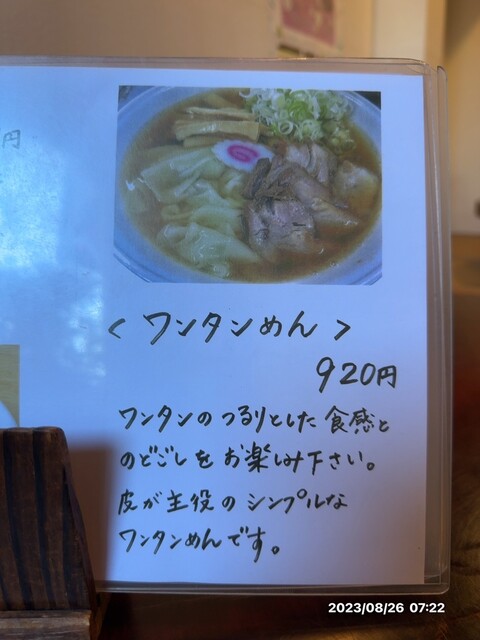 円
< ワンタンめん >
920円
ワンタンの つるりとした 食感と
のどごしを お楽しみ下さい。
皮が主役の シンプルな
ワンタンめんです。
2023/08/26 07:22